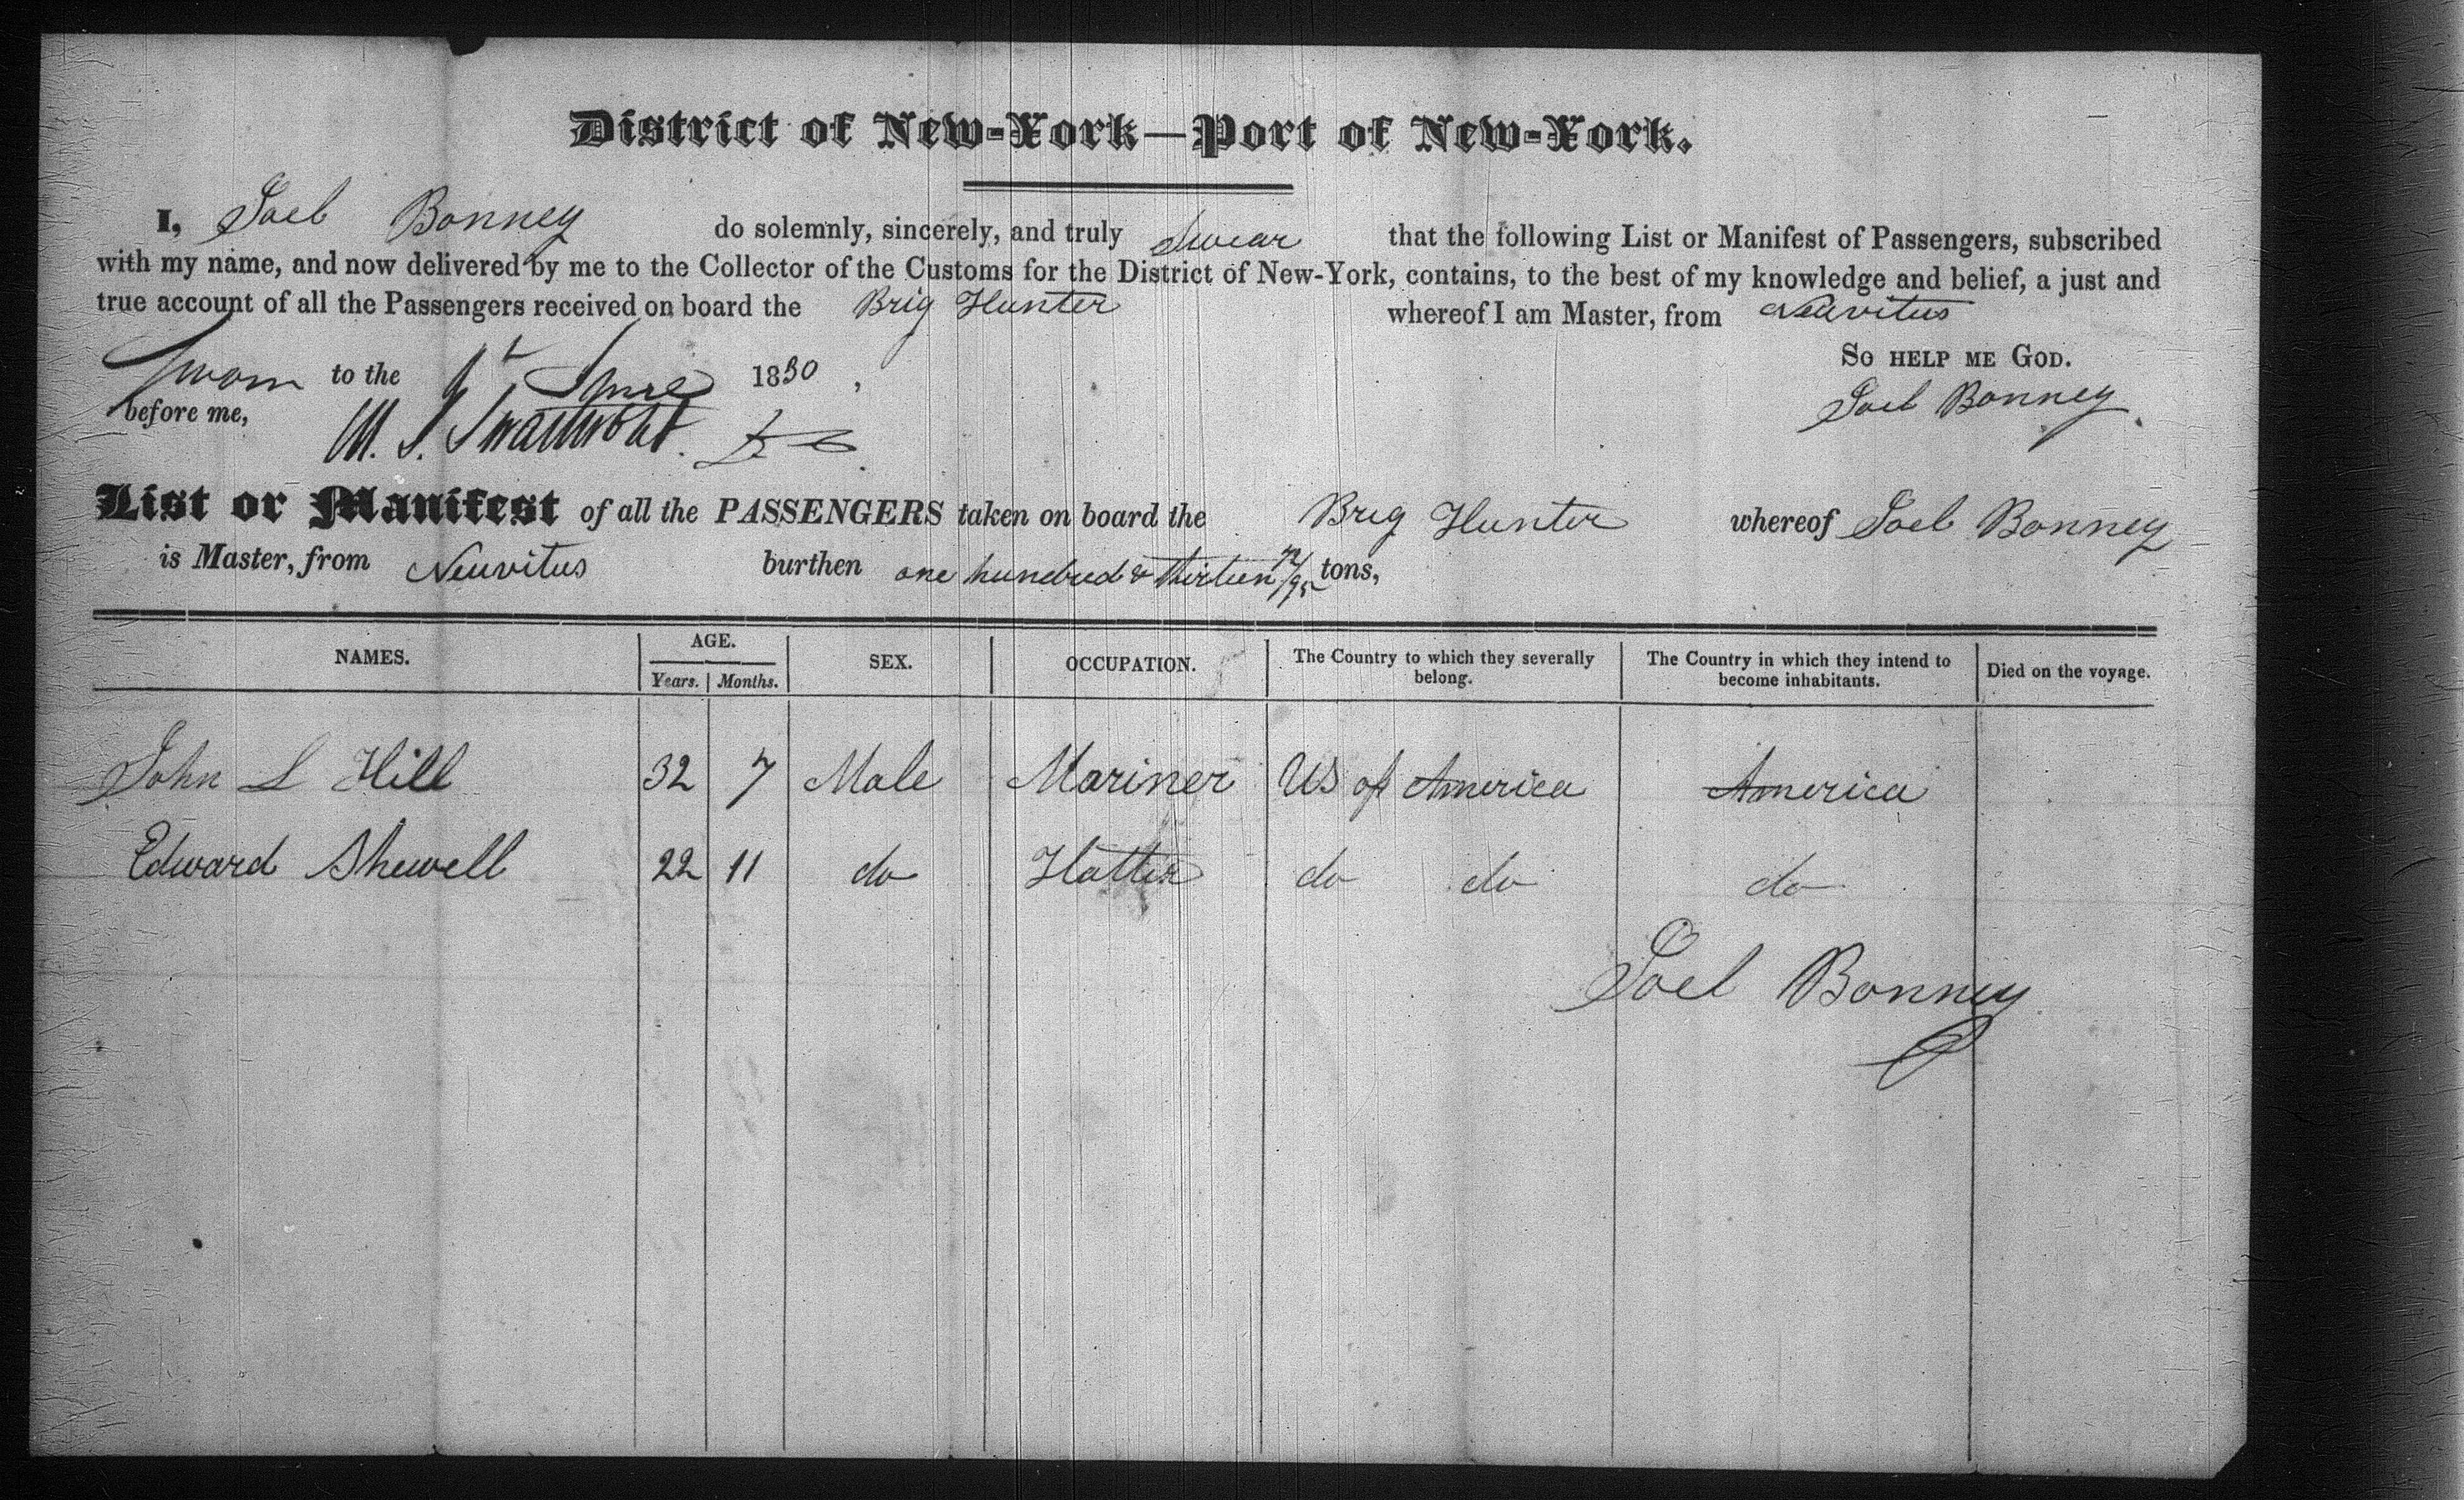 District of New-York—Port of New-York.
I, Joel Bonney do solemnly, sincerely, and truly Swear that the following List or Manifest of Passengers, subscribed
with my name, and now delivered by me to the Collector of the Customs for the District of New-York, contains, to the best of my knowledge and belief, a just and
true account of all the Passengers received on board the Brig Hunter whereof I am Master, from Neuvitus
So HELP ME GOD.
Sworn to the 1830
Joel Bonney
before me, M. S. Swartwout
List or Manifest of all the PASSENGERS taken on board the Brig Hunter whereof Joel Bonney
is Master, from Neuvitus burthen one hundred & thirteen /95 tons,
NAMES. AGE. SEX. OCCUPATION. The Country to which they severally belong. The Country in which they intend to become inhabitants. Died on the voyage.
Years. Months.
John L Hill 32 7 Male Mariner US of America America
Edward Shewell 22 11 do Hatter do do do
Joel Bonney